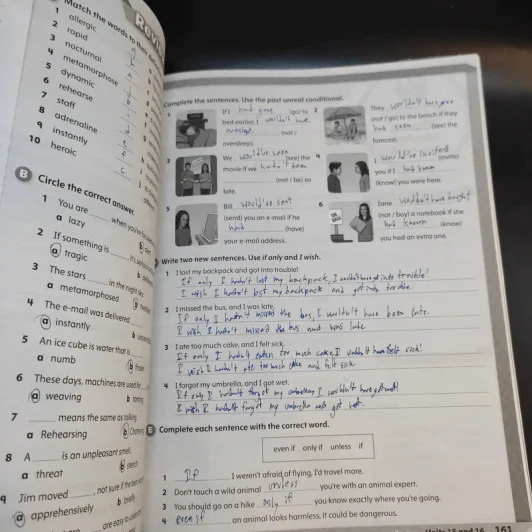 Match the words to their
1 allergic
2 rapid
3 nocturnal
4 metamorphose
5 dynamic
6 rehearse
7 staff
8 adrenaline
9 instantly
10 heroic
B Circle the correct answer.
1 You are ___ when you're
a lazy
2 If something is ___, it's
a tragic
3 The stars ___ in the night sky
a metamorphosed
4 The e-mail was delivered ___
a instantly
5 An ice cube is water that is ___
a numb b frozen
6 These days, machines are used
a weaving
7 ___ means the same as talking
a Rehearsing
8 A ___ is an unpleasant smell.
a threat b stench
9 Jim moved ___, not sure
a apprehensively b briefly
Complete the sentences. Use the past unreal conditional.
1 had gone (go) to
bed earlier, I wouldn't have
(not /
oversleep).
2 They wouldn't have gone
(not / go) to the beach if they
had seen (see) the
forecast.
3 We would've seen (see) the
movie if we hadn't been
(not / be) so
late.
4 I would've invited (invite)
you if I had known
(know) you were here.
5 Bill would've sent
(send) you an e-mail if he
had (have)
your e-mail address.
6 Jane wouldn't have bought
(not / buy) a notebook if she
had known (know)
you had an extra one.
Write two new sentences. Use if only and I wish.
1 I lost my backpack and got into trouble!
If only I hadn't lost my backpack, I wouldn't have got into trouble!
I wish I hadn't lost my backpack and got into trouble.
2 I missed the bus, and I was late.
If only I hadn't missed the bus, I wouldn't have been late.
I wish I hadn't missed the bus and was late.
3 I ate too much cake, and I felt sick.
If only I hadn't eaten too much cake, I wouldn't have felt sick!
I wish I hadn't ate too much cake and felt sick.
4 I forgot my umbrella, and I got wet.
If only I hadn't forgot my umbrella, I wouldn't have got wet!
I wish I hadn't forgot my umbrella and got wet.
E Complete each sentence with the correct word.
even if only if unless if
1 If I weren't afraid of flying, I'd travel more.
2 Don't touch a wild animal unless you're with an animal expert.
3 You should go on a hike only if you know exactly where you're going.
4 even if an animal looks harmless, it could be dangerous.
Units 15 and 16 161